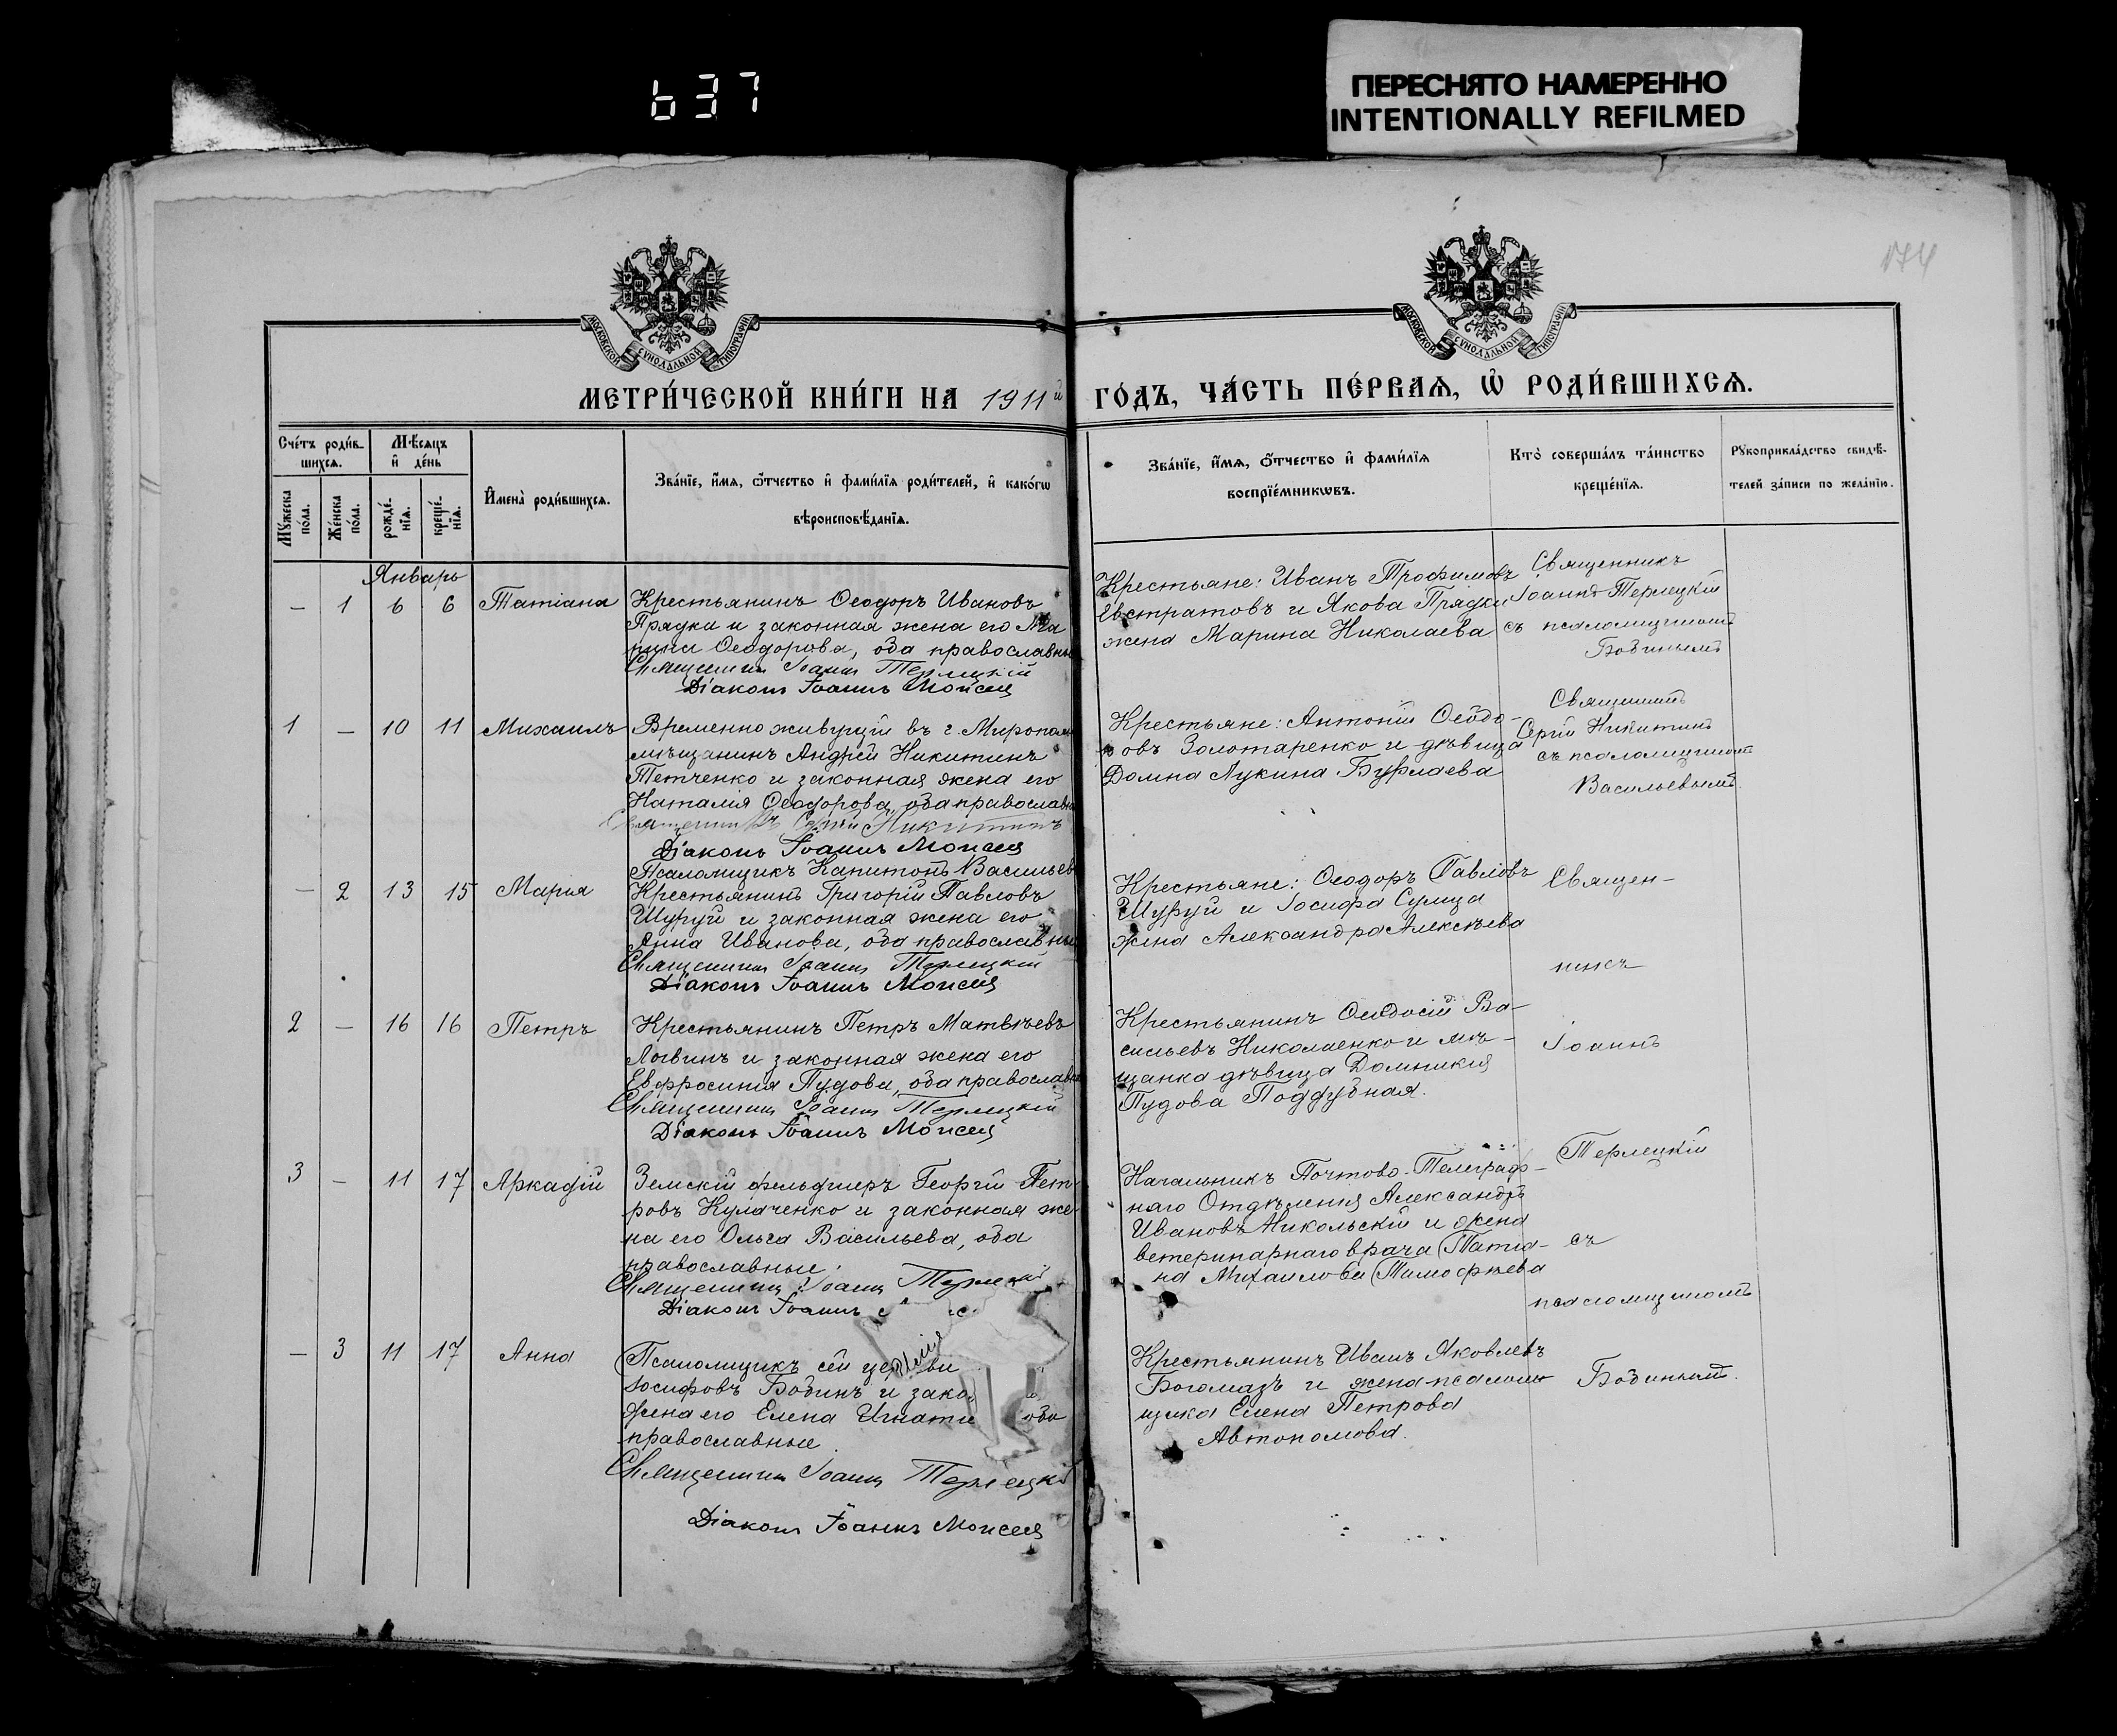 637
ПЕРЕСНЯТО НАМЕРЕННО
INTENTIONALLY REFILMED
174
МОСКОВСКОЙ СѴНОДАЛЬНОЙ ТИПОГРАФІИ
МОСКОВСКОЙ СѴНОДАЛЬНОЙ ТИПОГРАФІИ
МЕТРИ́ЧЕСКОЙ КНИ́ГИ НА 1911й ГО́ДЪ, ЧА́СТЬ ПЕ́РВАѦ, Ѡ҆ РОДИ́ВШИХСѦ.
Сче́тъ роди́в-
шихсѧ.
Мѣ́сѧцъ
и҆ де́нь
Мꙋ́жеска
по́ла.
Же́нска
по́ла.
рожде́-
нїѧ.
креще́-
нїѧ.
И҆мена̀ роди́вшихсѧ.
Зва́нїе, и҆́мѧ, ѻ҆́тчество и҆ фами́лїѧ роди́телей, и҆ како́гѡ
вѣроисповѣ́данїѧ.
Зва́нїе, и҆́мѧ, ѻ҆́тчество и҆ фами́лїѧ
воспрїе́мникѡвъ.
Кто̀ соверша́лъ та́инство
креще́нїѧ.
Рꙋкоприкла́дство свидѣ́-
телей за́писи по жела́нїю.
Январь
— 1 6 6 Татіана
Крестьянинъ Ѳеодоръ Ивановъ
Прядка и законная жена его
Ѳеодорова, оба православные
Священникъ Іоаннъ Терлецкій
Діаконъ Іоаннъ Моисеев
Крестьяне: Иванъ Трофимовъ
Евстратовъ и Якова Прядки
жена Марина Николаева
Священникъ
Іоаннъ Терлецкій
съ псаломщикомъ
Бобинымъ
1 — 10 11 Михаилъ
Временно живущій въ г. Мирополи
мѣщанинъ Андрей Никитинъ
Тетченко и законная жена его
Наталія Ѳеодорова, оба православны
Священникъ Сергій Никитинъ
Діаконъ Іоаннъ Моисеев
Псаломщикъ Капитонъ Васильев
Крестьяне: Антоній Ѳеодо-
ровъ Золотаренко и дѣвица
Домна Лукина Бурлаева
Священникъ
Сергій Никитинъ
съ псаломщикомъ
Васильевымъ
— 2 13 15 Марія
Крестьянинъ Григорій Павловъ
Шуруй и законная жена его
Анна Иванова, оба православные
Священникъ Іоаннъ Терлецкій
Діаконъ Іоаннъ Моисеев
Крестьяне: Ѳеодоръ Павловъ
Шуруй и Іосифа Сумца
жена Александра Алексѣева
Священ-
никъ
2 — 16 16 Петръ
Крестьянинъ Петръ Матвѣевъ
Логвинъ и законная жена его
Евфросинія Пудова, оба православн
Священникъ Іоаннъ Терлецкій
Діаконъ Іоаннъ Моисеев
Крестьянинъ Ѳеодосій Ва-
сильевъ Николаенко и мѣ-
щанка дѣвица Домникія
Пудова Поддубная.
Іоаннъ
3 — 11 17 Аркадій
Земскій фельдшеръ Георгій Пет-
ровъ Кулаченко и законная же-
на его Ольга Васильева, оба
православные.
Священникъ Іоаннъ Терлецкій
Діаконъ Іоаннъ
Начальникъ Почтово-Телеграф-
наго Отдѣленія Александръ
Ивановъ Никольскій и жена
ветеринарнаго врача Татіа-
на Михаилова Тимофѣева
Терлецкій
съ
псаломщикомъ
— 3 11 17 Анна
Псаломщикъ сей церкви
Іосифовъ Бобинъ и зако
жена его Елена Игнатіе оба
православные.
Священникъ Іоаннъ Терлецкій
Діаконъ Іоаннъ Моисеев
Крестьянинъ Иванъ Яковлевъ
Богомазъ и жена псалом-
щика Елена Петрова
Автономова.
Бобинымъ.